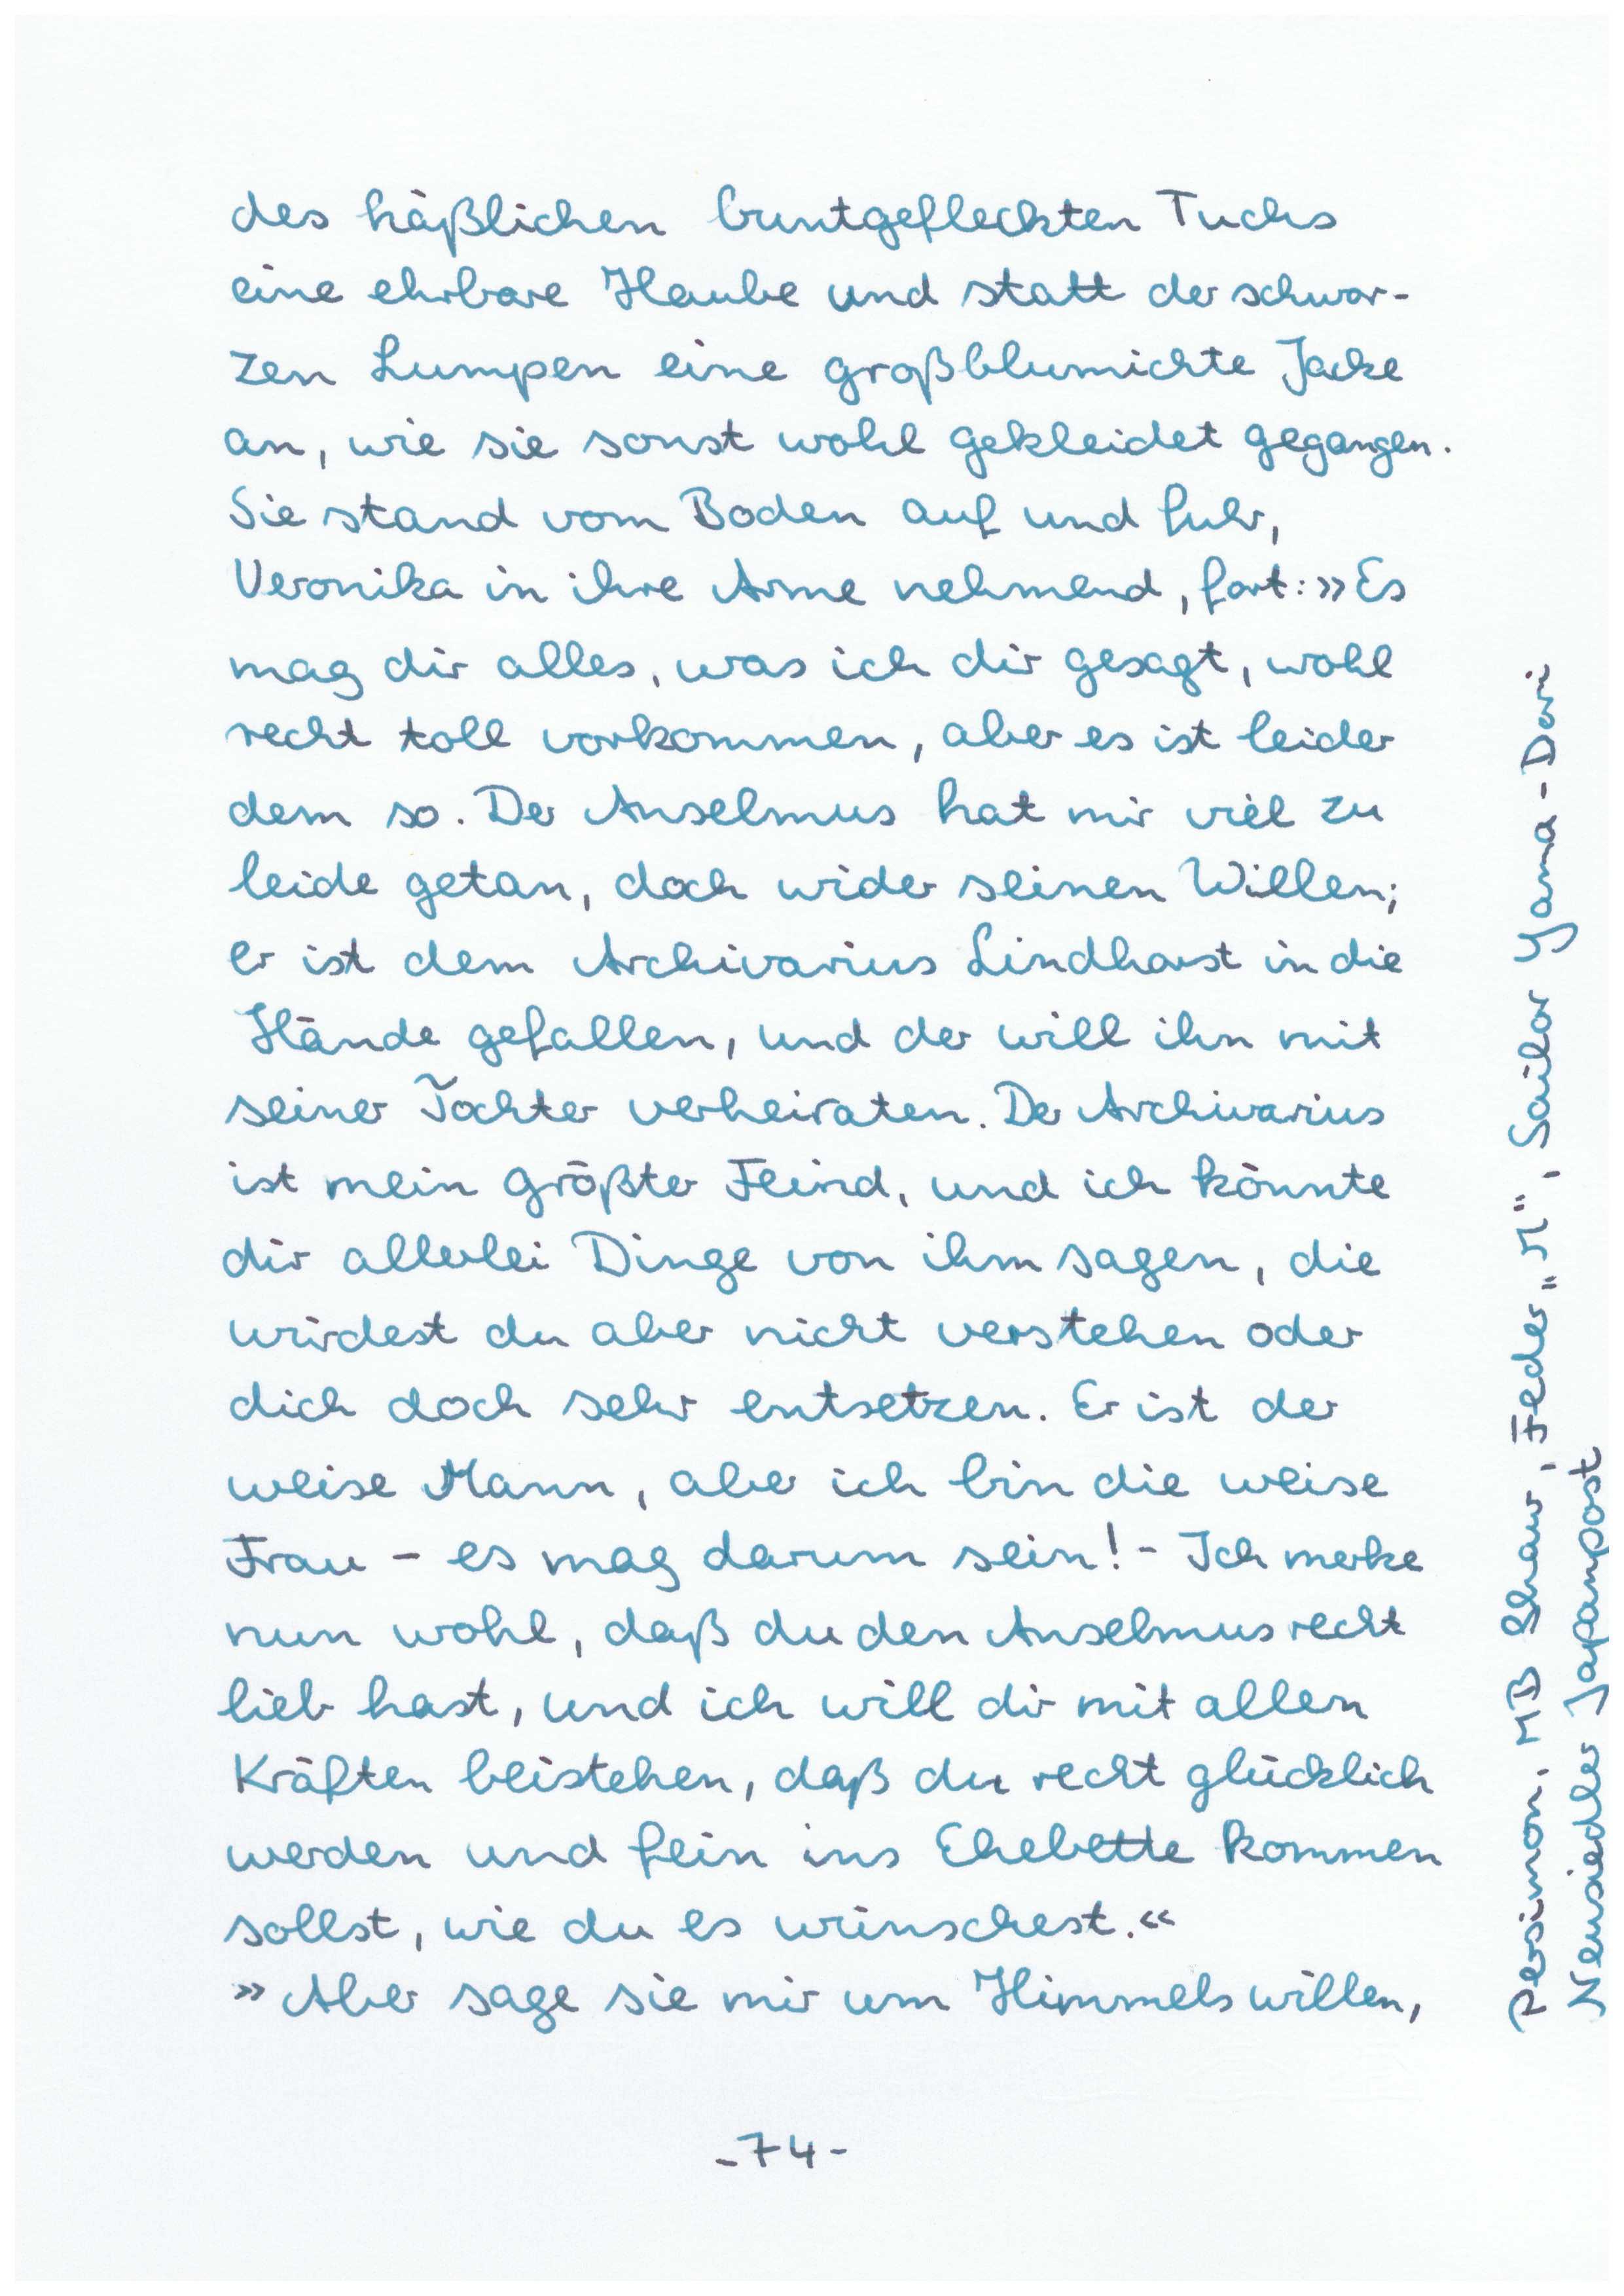 des häßlichen buntgefleckten Tuchs
eine ehrbare Haube und statt der schwar-
zen Lumpen eine großblumichte Jacke
an, wie sie sonst wohl gekleidet gegangen.
Sie stand vom Boden auf und fuhr,
Veronika in ihre Arme nehmend, fort: »Es
mag dir alles, was ich dir gesagt, wohl
recht toll vorkommen, aber es ist leider
dem so. Der Anselmus hat mir viel zu
leide getan, doch wider seinen Willen;
er ist dem Archivarius Lindhorst in die
Hände gefallen, und der will ihn mit
seiner Tochter verheiraten. Der Archivarius
ist mein größter Feind, und ich könnte
dir allerlei Dinge von ihm sagen, die
würdest du aber nicht verstehen oder
dich doch sehr entsetzen. Er ist der
weise Mann, aber ich bin die weise
Frau – es mag darum sein! – Ich merke
nun wohl, daß du den Anselmus recht
lieb hast, und ich will dir mit allen
Kräften beistehen, daß du recht glücklich
werden und fein ins Ehebette kommen
sollst, wie du es wünschest.«
»Aber sage sie mir um Himmels willen,
-74-
Persimon, MB Shaw, Feder „M“, Sailor Yama-Dori
Neusiedler Japanpost